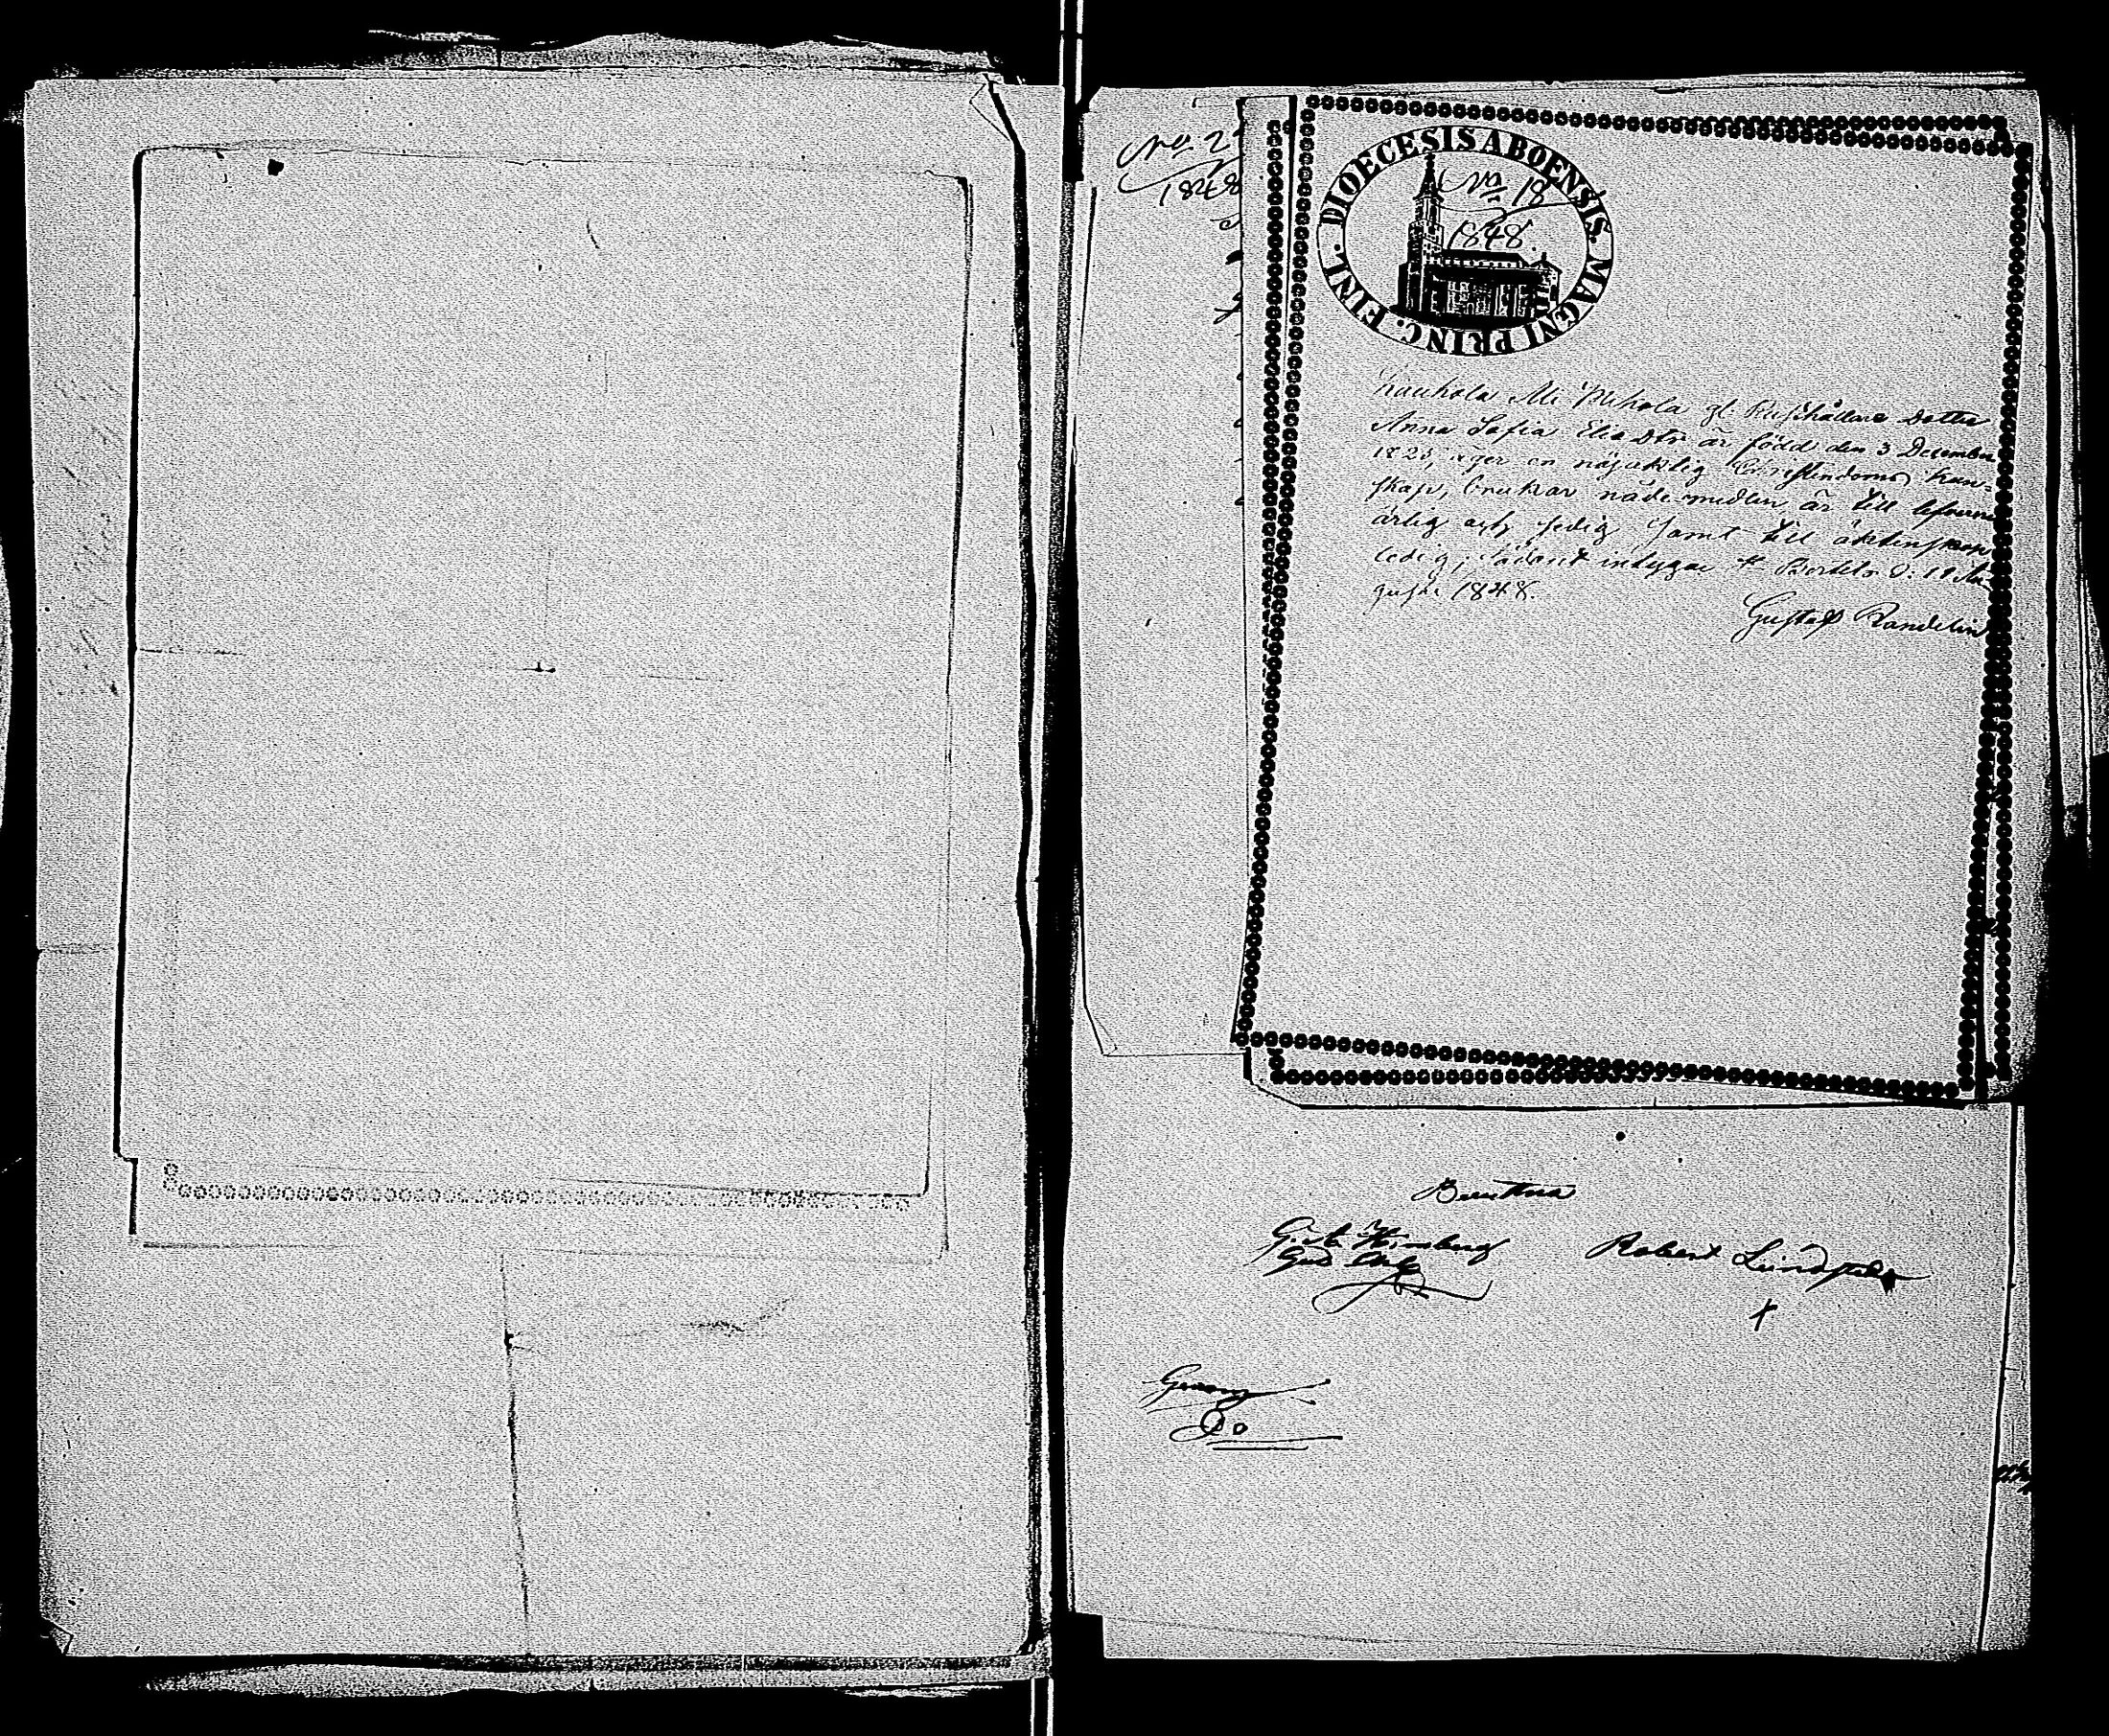 No 2
1848
DIOECESIS ABOENSIS. MAGNI PRINC. FINL.
No 18
1848.
Kauhola Mikola gl. Rusthållare Dotter
Anna Sofia Eliædtr är född den 3 December
1823, äger en nöjaktig Christendoms kun-
skap, brukar nåde medlen, är till lefverne
ärlig och sedig samt till äktenskap
ledig; sådant intygar St Bertels d: 19 Au-
gusti 1848.
Gustaf Randelin
Robert Lindstedt